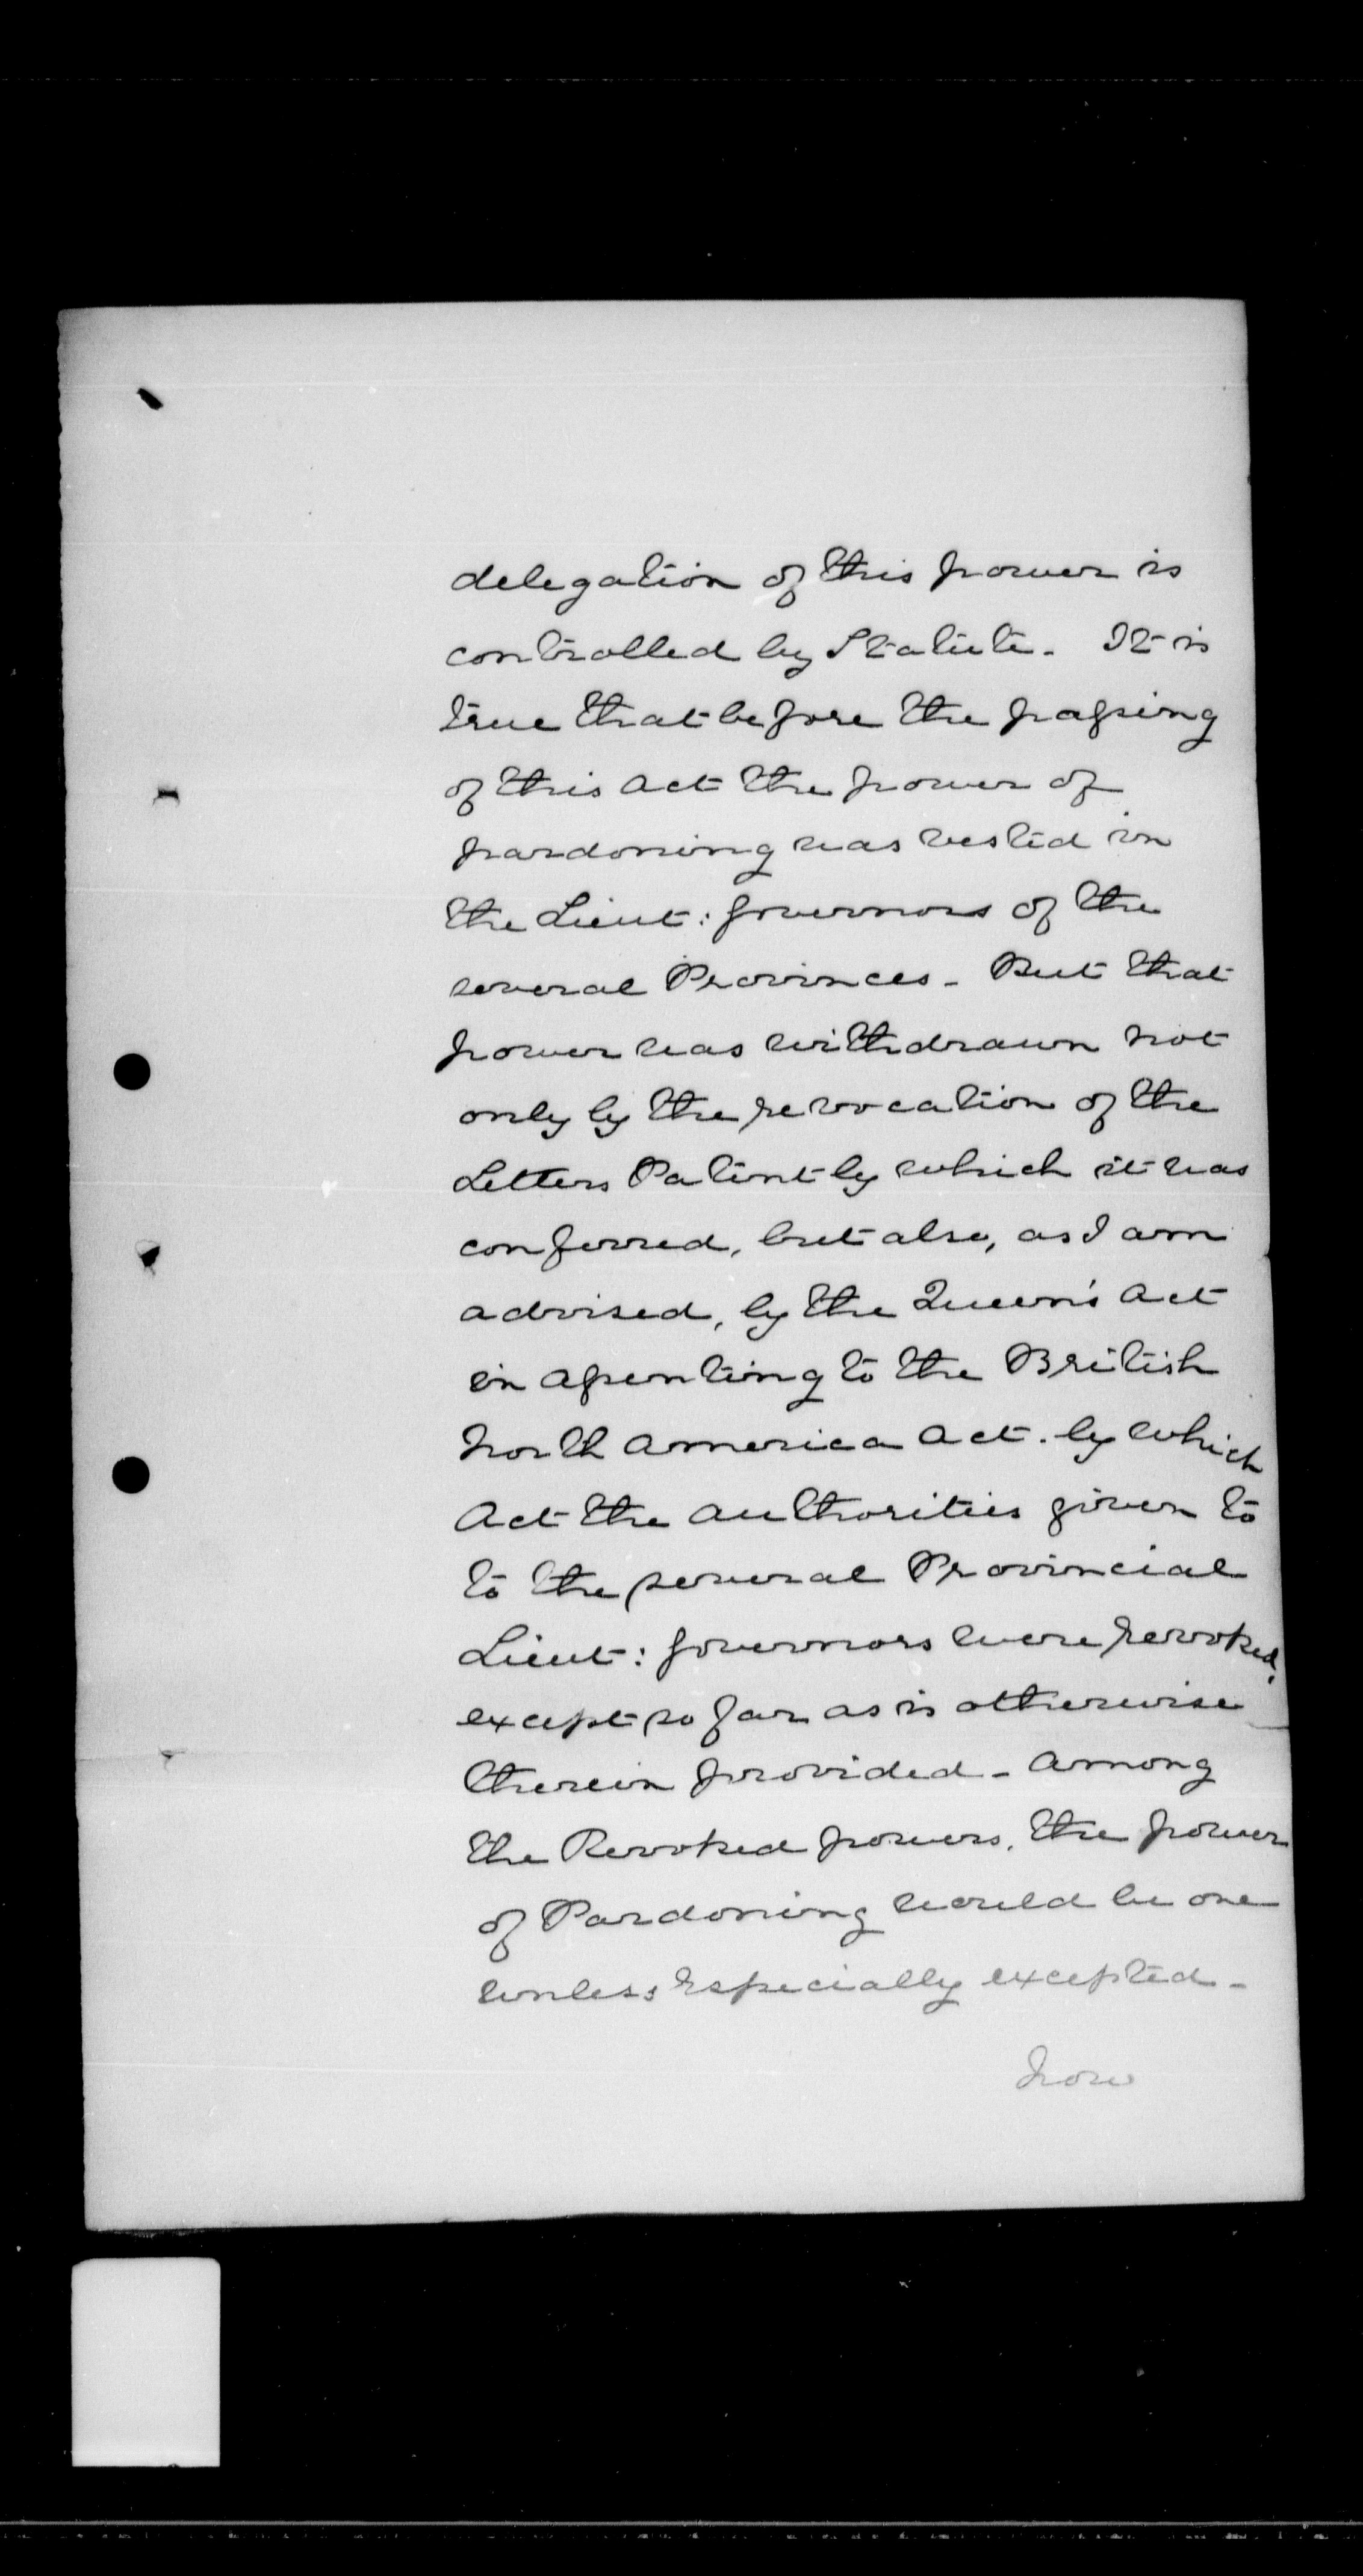 delegation of this power is
controlled by Statute. It is
true that before the passing
of this Act the power of
pardoning was vested in
the Lieut: Governors of the
several Provinces - But that
power was withdrawn not
only by the revocation of the
Letters Patent by which it was
conferred, but also, as I am
advised, by the Queen's Act
in assenting to the British
North America Act. by which
Act the authorities given to
to the several Provincial
Lieut: Governors were revoked,
except so far as is otherwise
therein provided - Among
the Revoked powers, the power
of Pardoning would be one
unless especially excepted -
Now